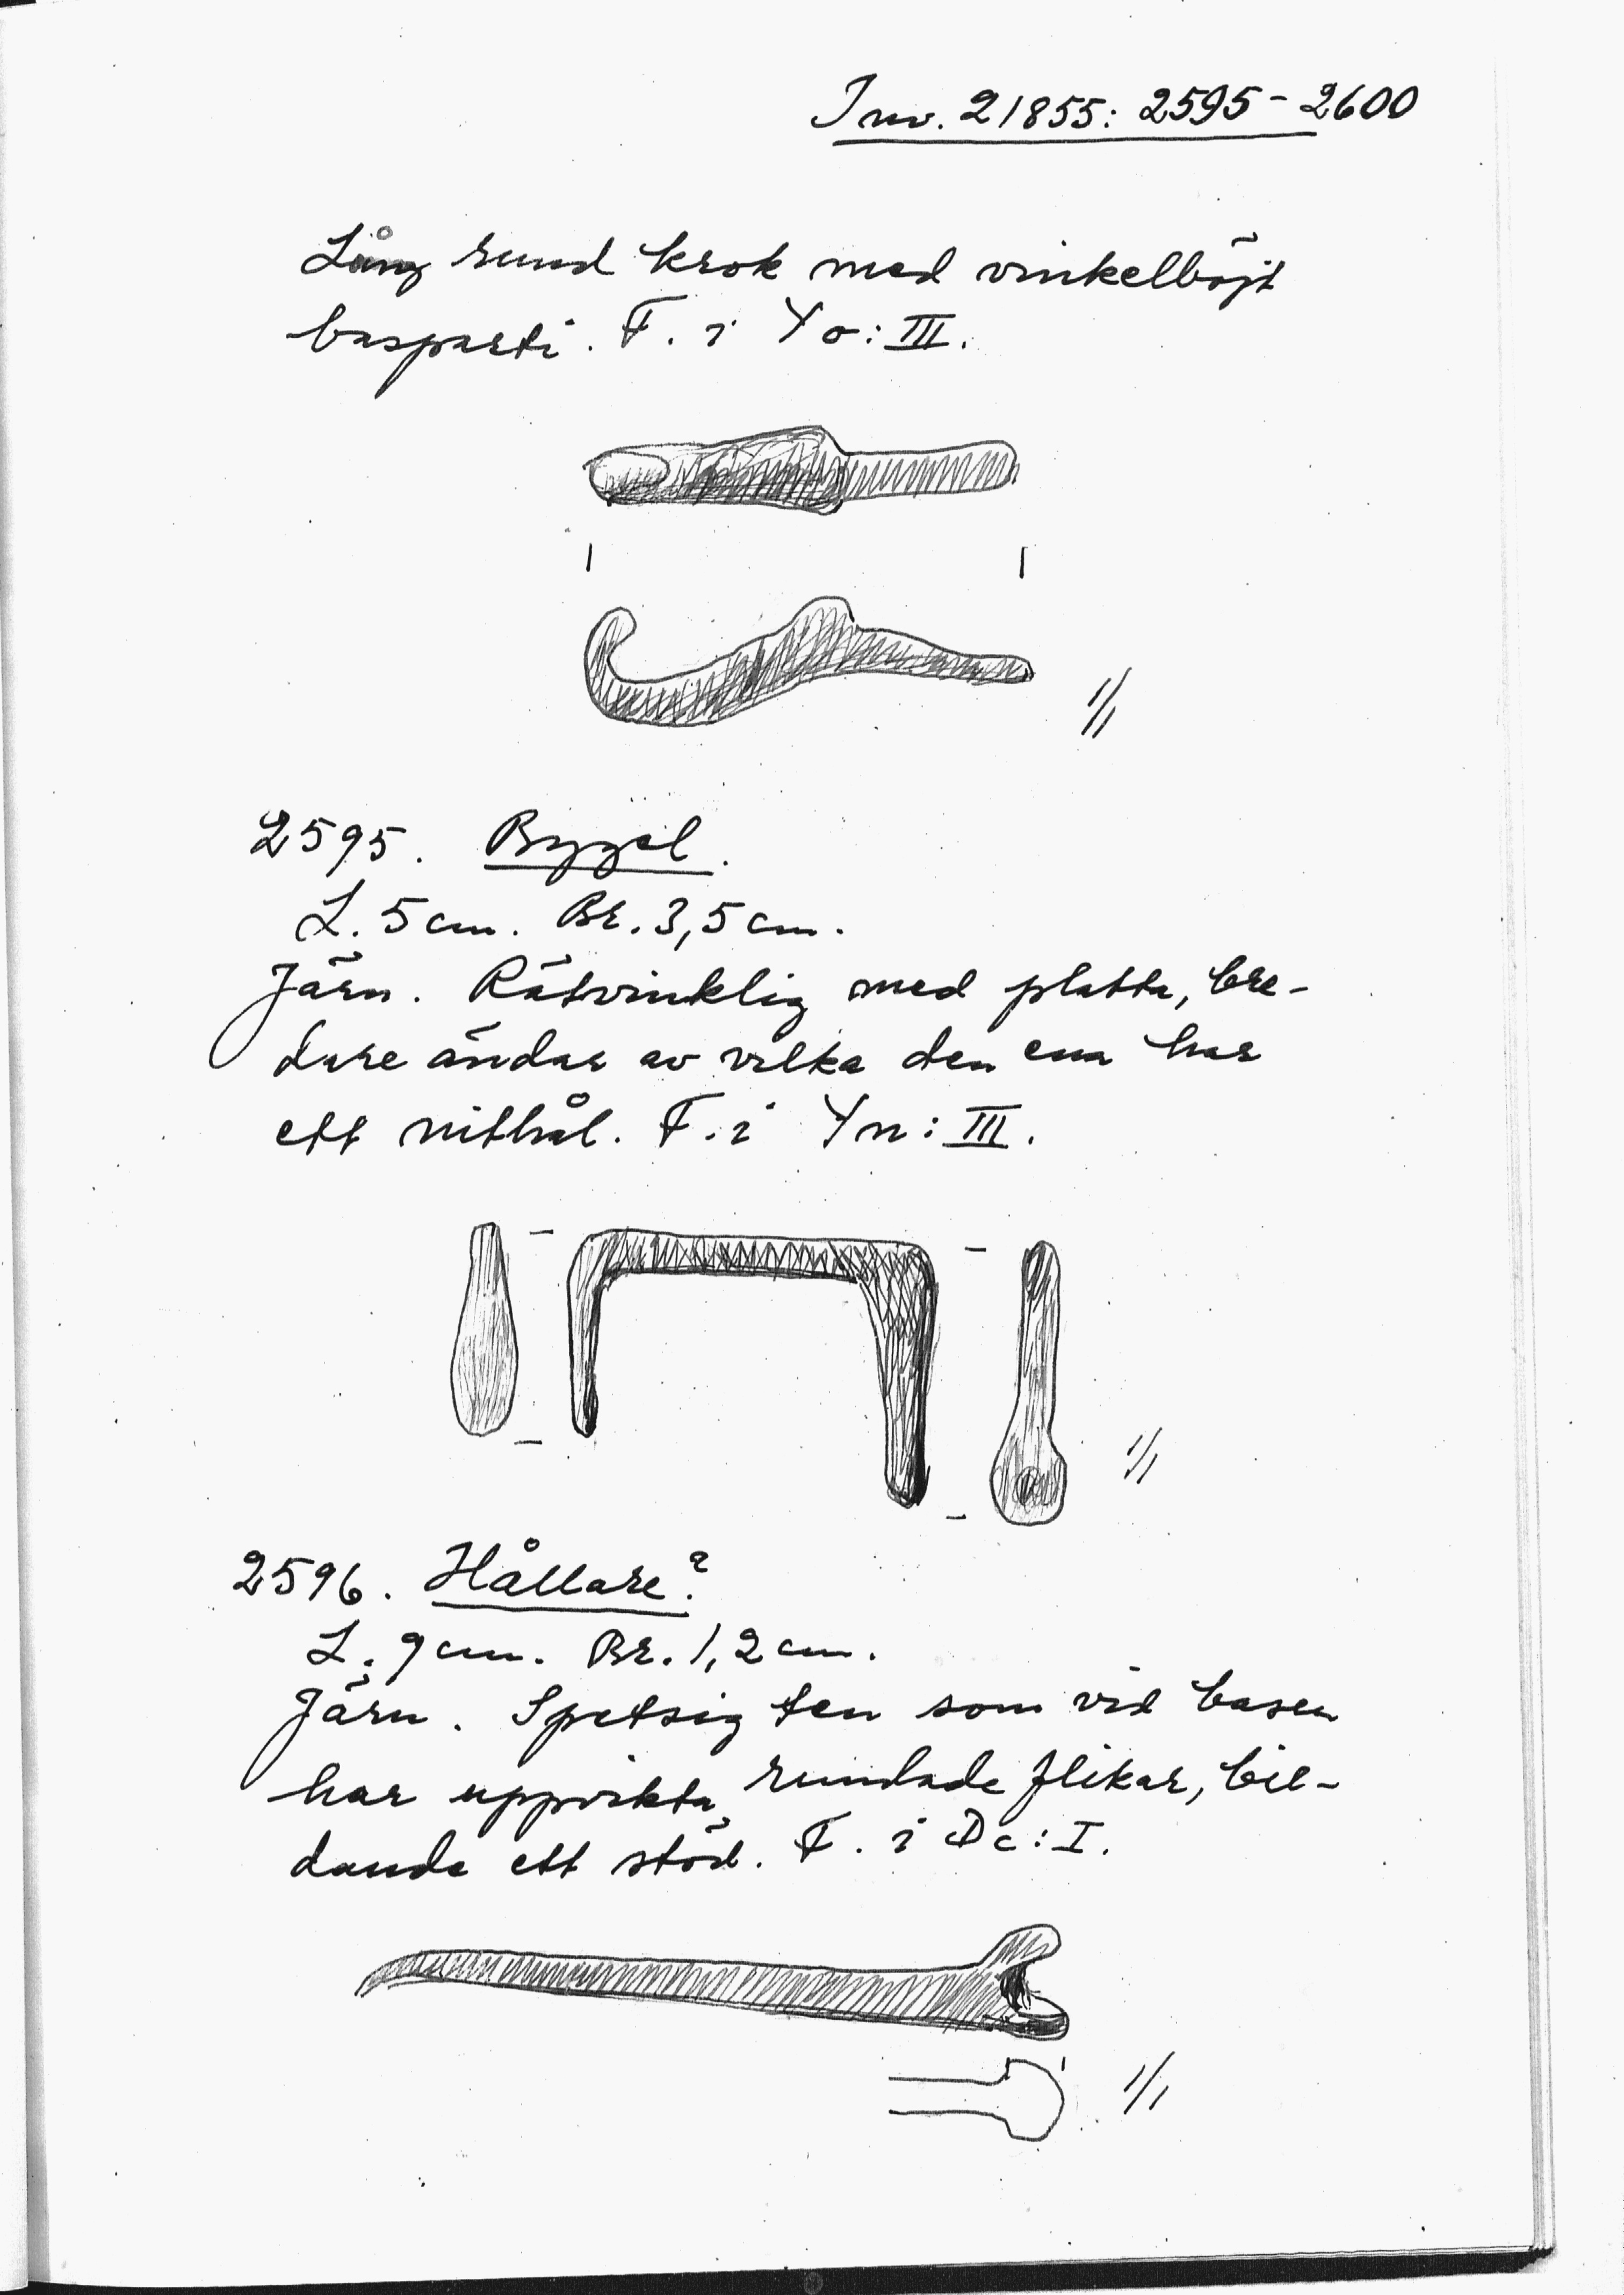 Inv. 21855: 2595-2600
Lång rund krok med vinkelböjt
basparti. F. i Yo: III.
1/1
2595. Bygel.
L. 5 cm. Br. 3,5 cm.
Järn. Rätvinklig med platta, bre-
dare ändar av vilka den ena har
ett nithål. F. i Yn: III.
1/1
2596. Hållare?
L. 9 cm. Br. 1,2 cm.
Järn. Spetsig ten som vid basen
har uppvikta, rundade flikar, bil-
dande ett stöd. F. i Dc: I.
1/1